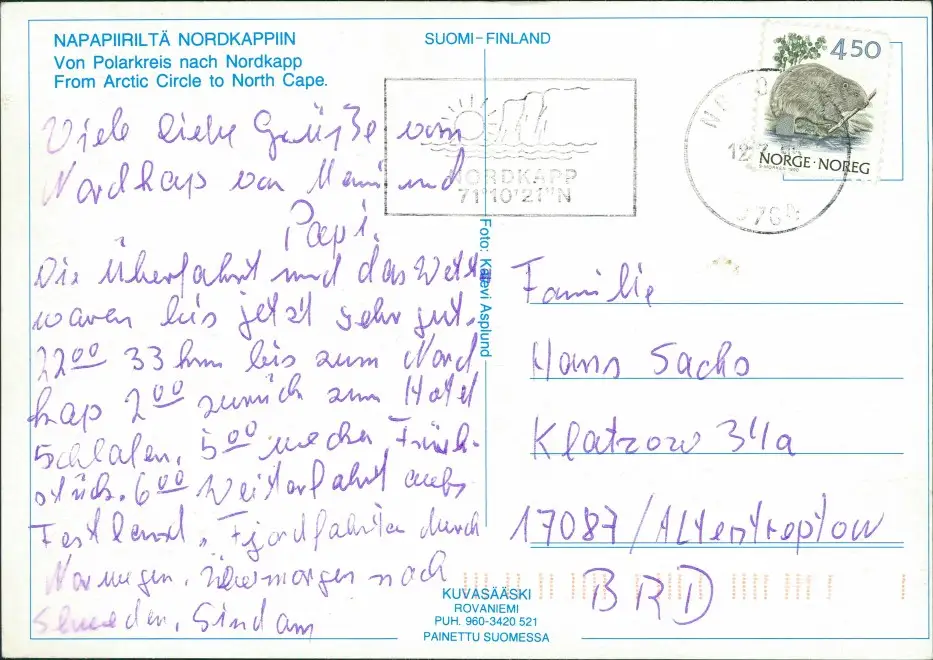 NAPAPIIRILTÄ NORDKAPPIIN
Von Polarkreis nach Nordkapp
From Arctic Circle to North Cape.
SUOMI-FINLAND
Viele liebe Grüße vom
Nordkap von Mami und
Papi.
Die Überfahrt und das Wetter
waren bis jetzt sehr gut.
22⁰⁰ 33 km bis zum Nord
kap 2⁰⁰ zurück zum Hotel
Schlafen, 5⁰⁰ wecken, Früh-
stück. 6⁰⁰ Weiterfahrt aufs
Festland, Fjordfahrten durch
Norwegen, übermorgen nach
Schweden. Sind am
NORDKAPP
71°10'21"N
450
NORGE·NOREG
Foto: Kalevi Asplund
Familie
Hans Sachs
Klatzow 34a
17087/Altentreptow
BRD
KUVASÄÄSKI
ROVANIEMI
PUH. 960-3420 521
PAINETTU SUOMESSA